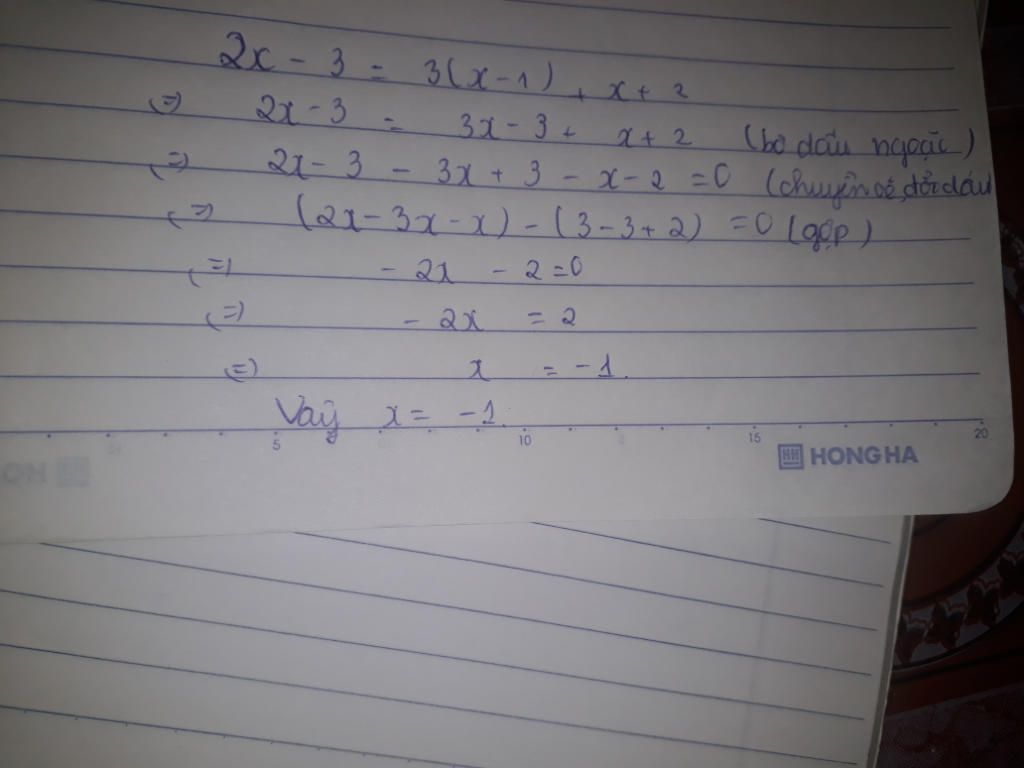 2x - 3 = 3(x-1) + x + 2
(=) 2x - 3 = 3x - 3 + x + 2 (bỏ dấu ngoặc)
(=) 2x - 3 - 3x + 3 - x - 2 = 0 (chuyển vế, đổi dấu
(=) (2x - 3x - x) - (3 - 3 + 2) = 0 (gộp)
(=) - 2x - 2 = 0
(=) - 2x = 2
(=) x = -1.
Vậy x = -1.
5 10 15 20
HONG HA